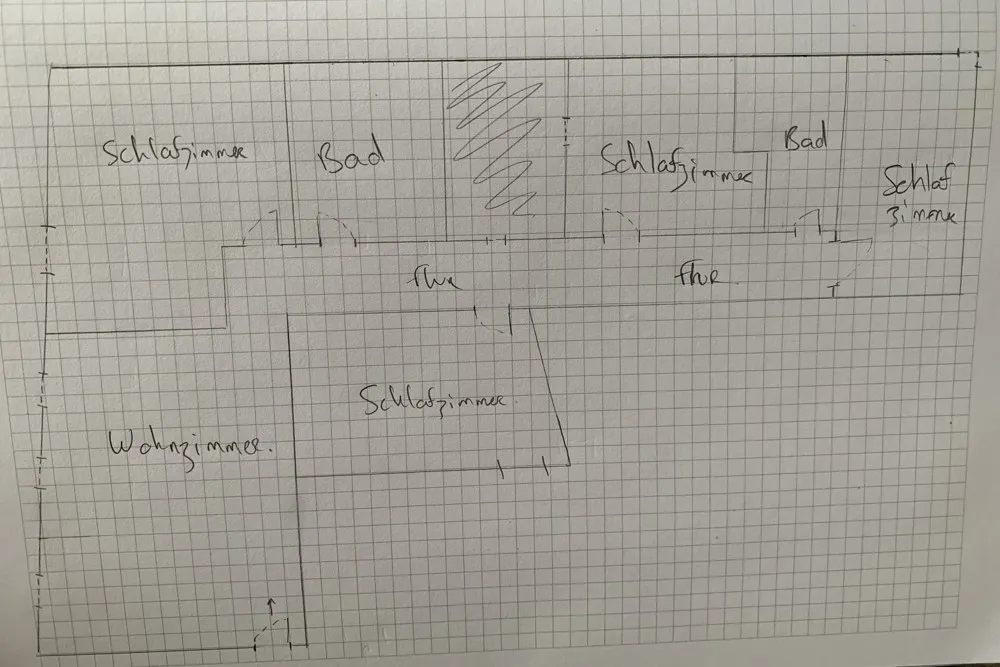 Schlafzimmer
Bad
Schlafzimmer
Bad
Schlaf
zimmer
flur
flur
Schlafzimmer
Wohnzimmer.